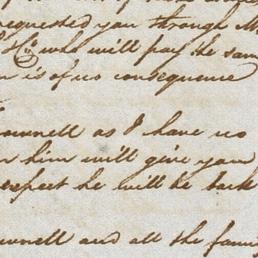 requested you through M
who will pay the sam
is of no consequence
as I have no
him will give you
respect he will be back
and all the fami